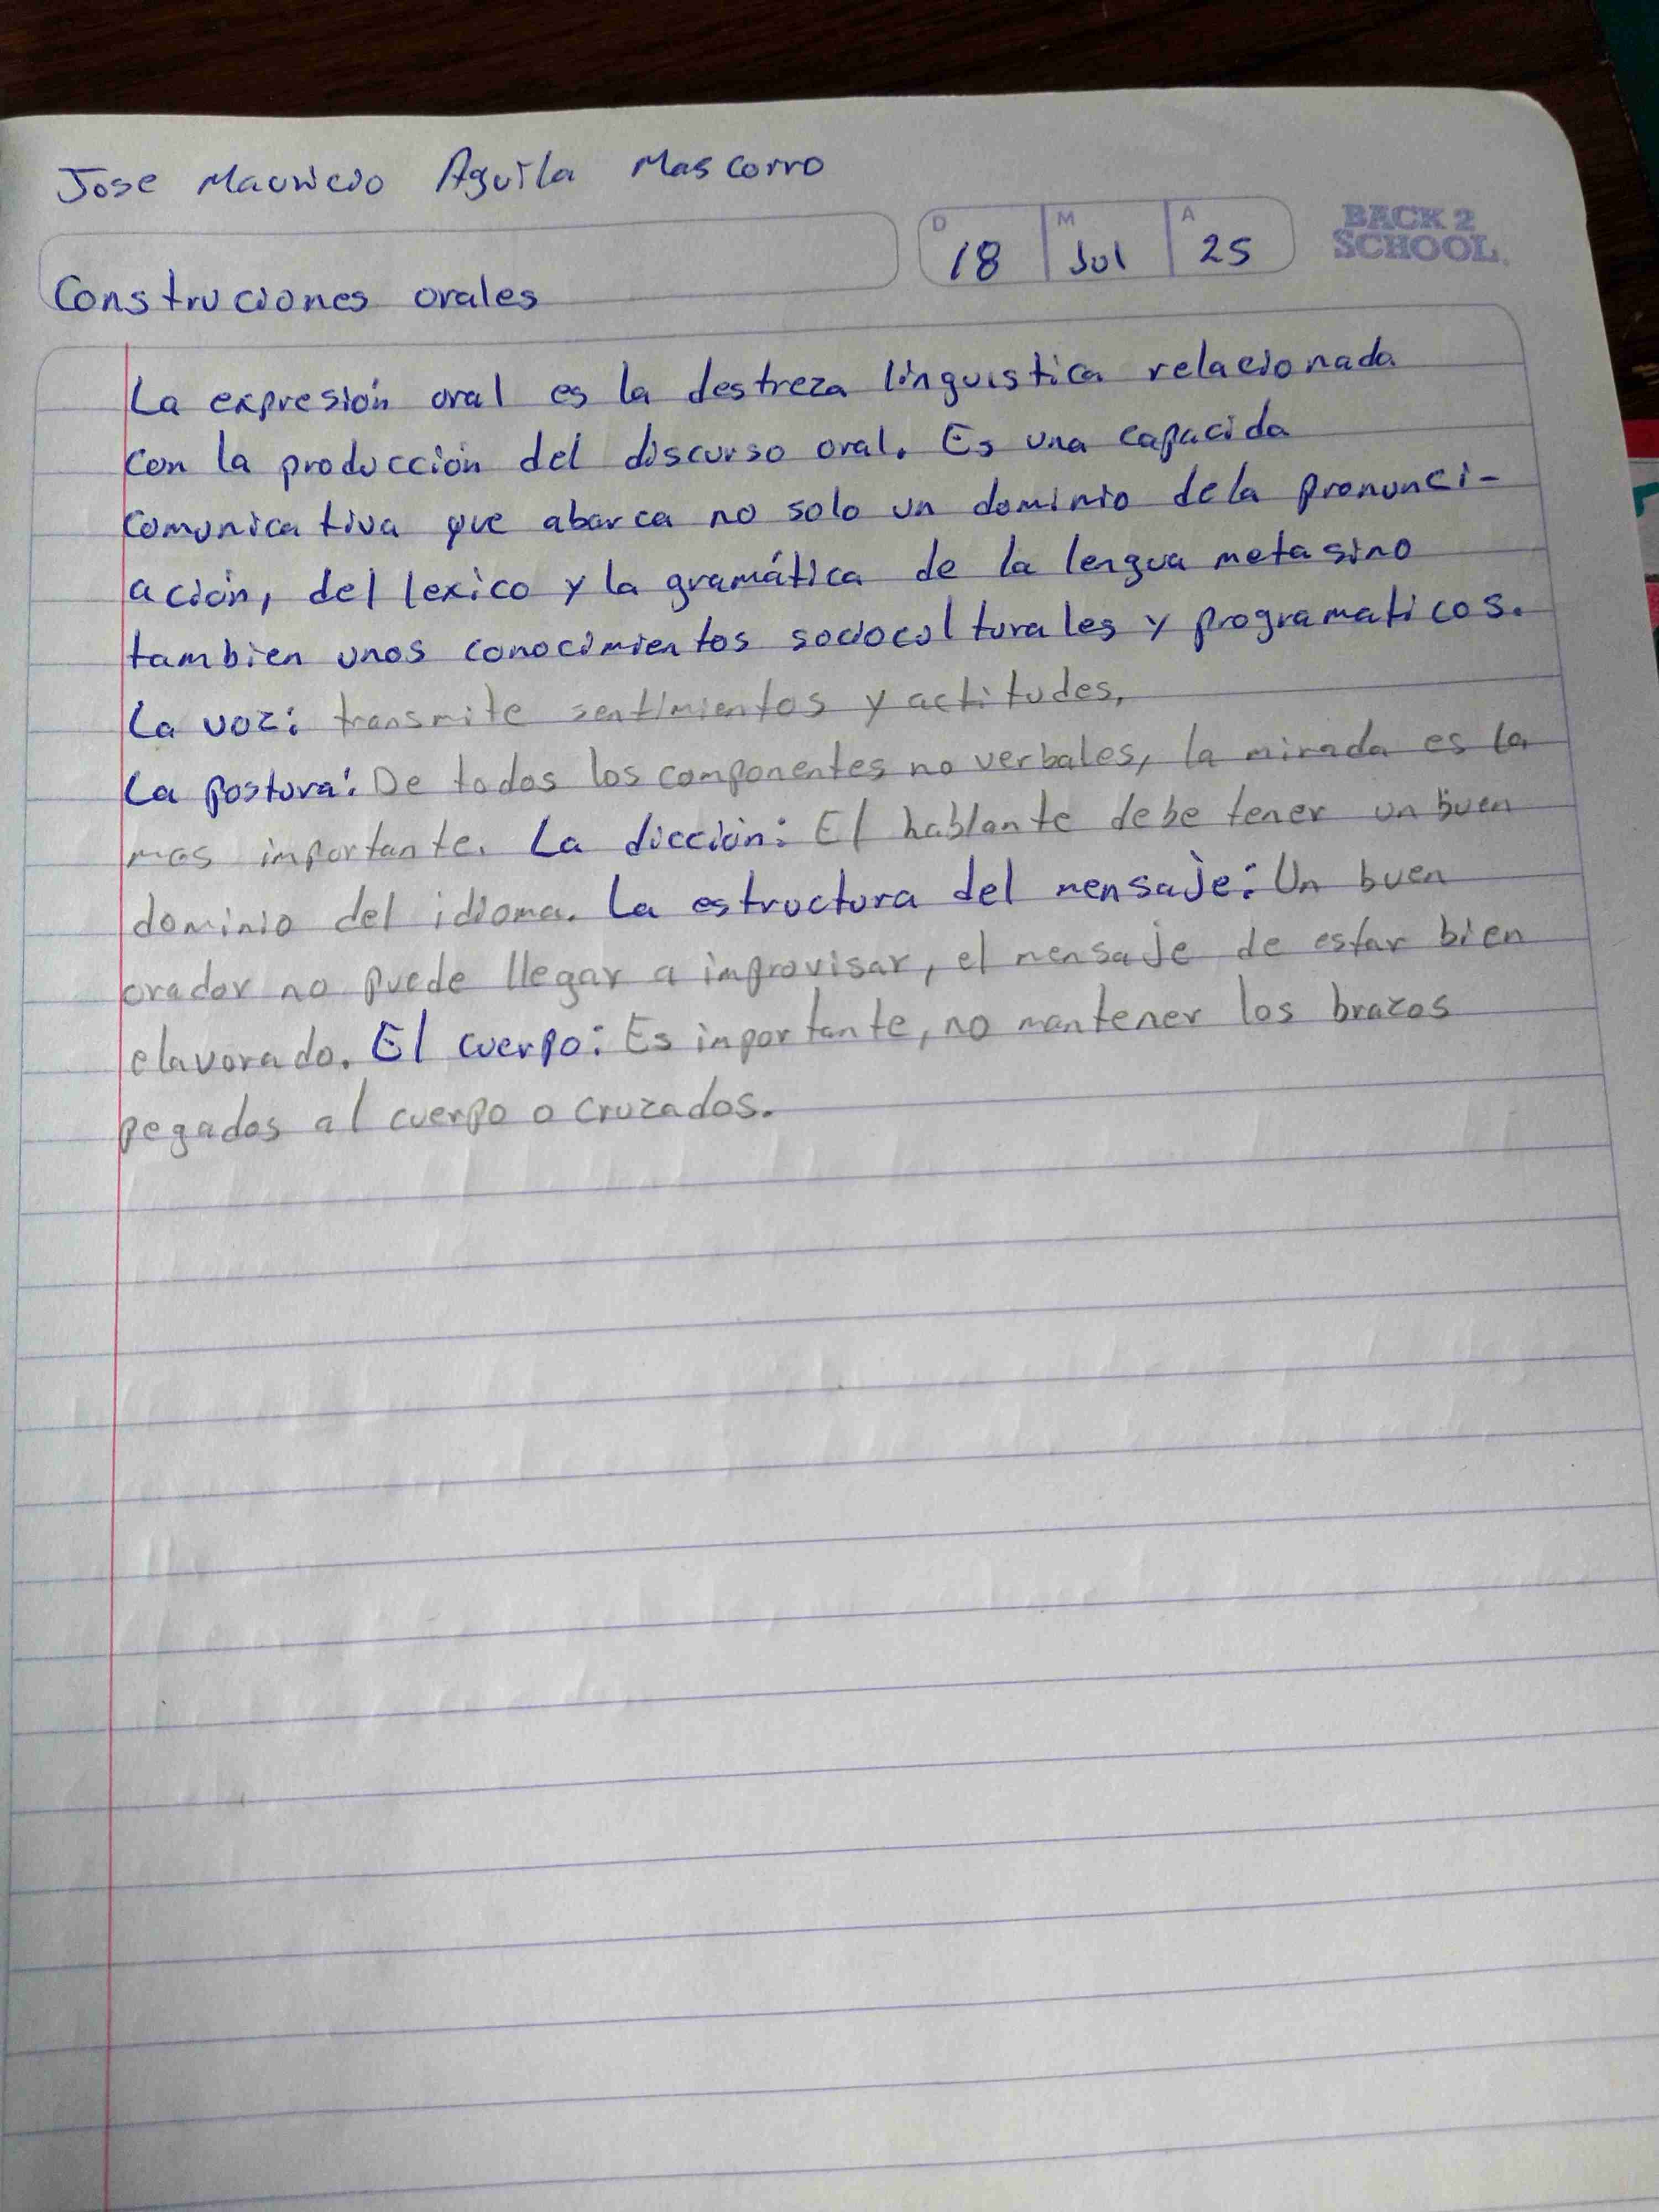 Jose Mauricio Aguila Mascorro
D M A
18 Jul 25
BACK 2
SCHOOL
Construciones orales
La expresión oral es la destreza linguistica relacionada
con la producción del discurso oral. Es una capacida
comunicativa que abarca no solo un dominio dela pronunci-
ación, del lexico y la gramática de la lengua meta sino
tambien unos conocimientos socioculturales y programaticos.
La voz: transmite sentimientos y actitudes,
La postura: De todos los componentes no verbales, la mirada es la
mas importante. La dicción: El hablante debe tener un buen
dominio del idioma. La estructura del mensaje: Un buen
orador no puede llegar a improvisar, el mensaje de estar bien
elavorado. El cuerpo: Es importante, no mantener los brazos
pegados al cuerpo o cruzados.